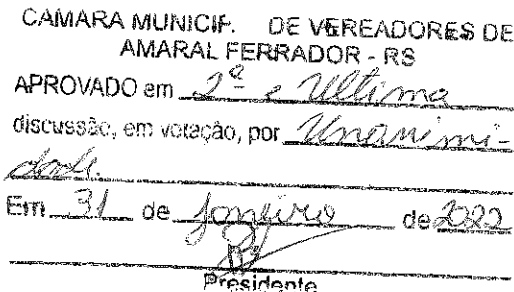 CAMARA MUNICIP. DE VEREADORES DE
AMARAL FERRADOR - RS
APROVADO em 2ª e Ultima
discussão, em votação, por Unanimi-
dade.
Em 31 de Janeiro de 2022
Presidente